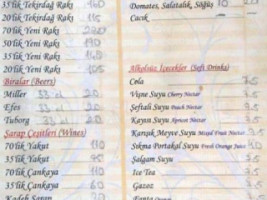 35'lik Tekirdağ Rakı 160
20'lik Tekirdağ Rakı 115
70'lik Yeni Rakı 220
50'lik Yeni Rakı 190
35'lik Yeni Rakı 140
20'lik Yeni Rakı 105
Biralar (Beers)
Miller 33 cl 20
Efes
Tuborg
Şarap Çeşitleri (Wines)
70'lik Yakut 110
35'lik Yakut
70'lik Çankaya 110
35'lik Çankaya 60
Kadeh Şarap
Domates, Salatalık, Söğüş
Cacık
Alkolsüz İçecekler (Soft Drinks)
Cola
Vişne Suyu Cherry Nectar
Şeftali Suyu Peach Nectar
Kayısı Suyu Apricot Nectar
Karışık Meyve Suyu Mixed Fruit Nectar
Sıkma Portakal Suyu Fresh Orange Juice
Şalgam Suyu
Ice Tea
Gazoz
Fanta Orange